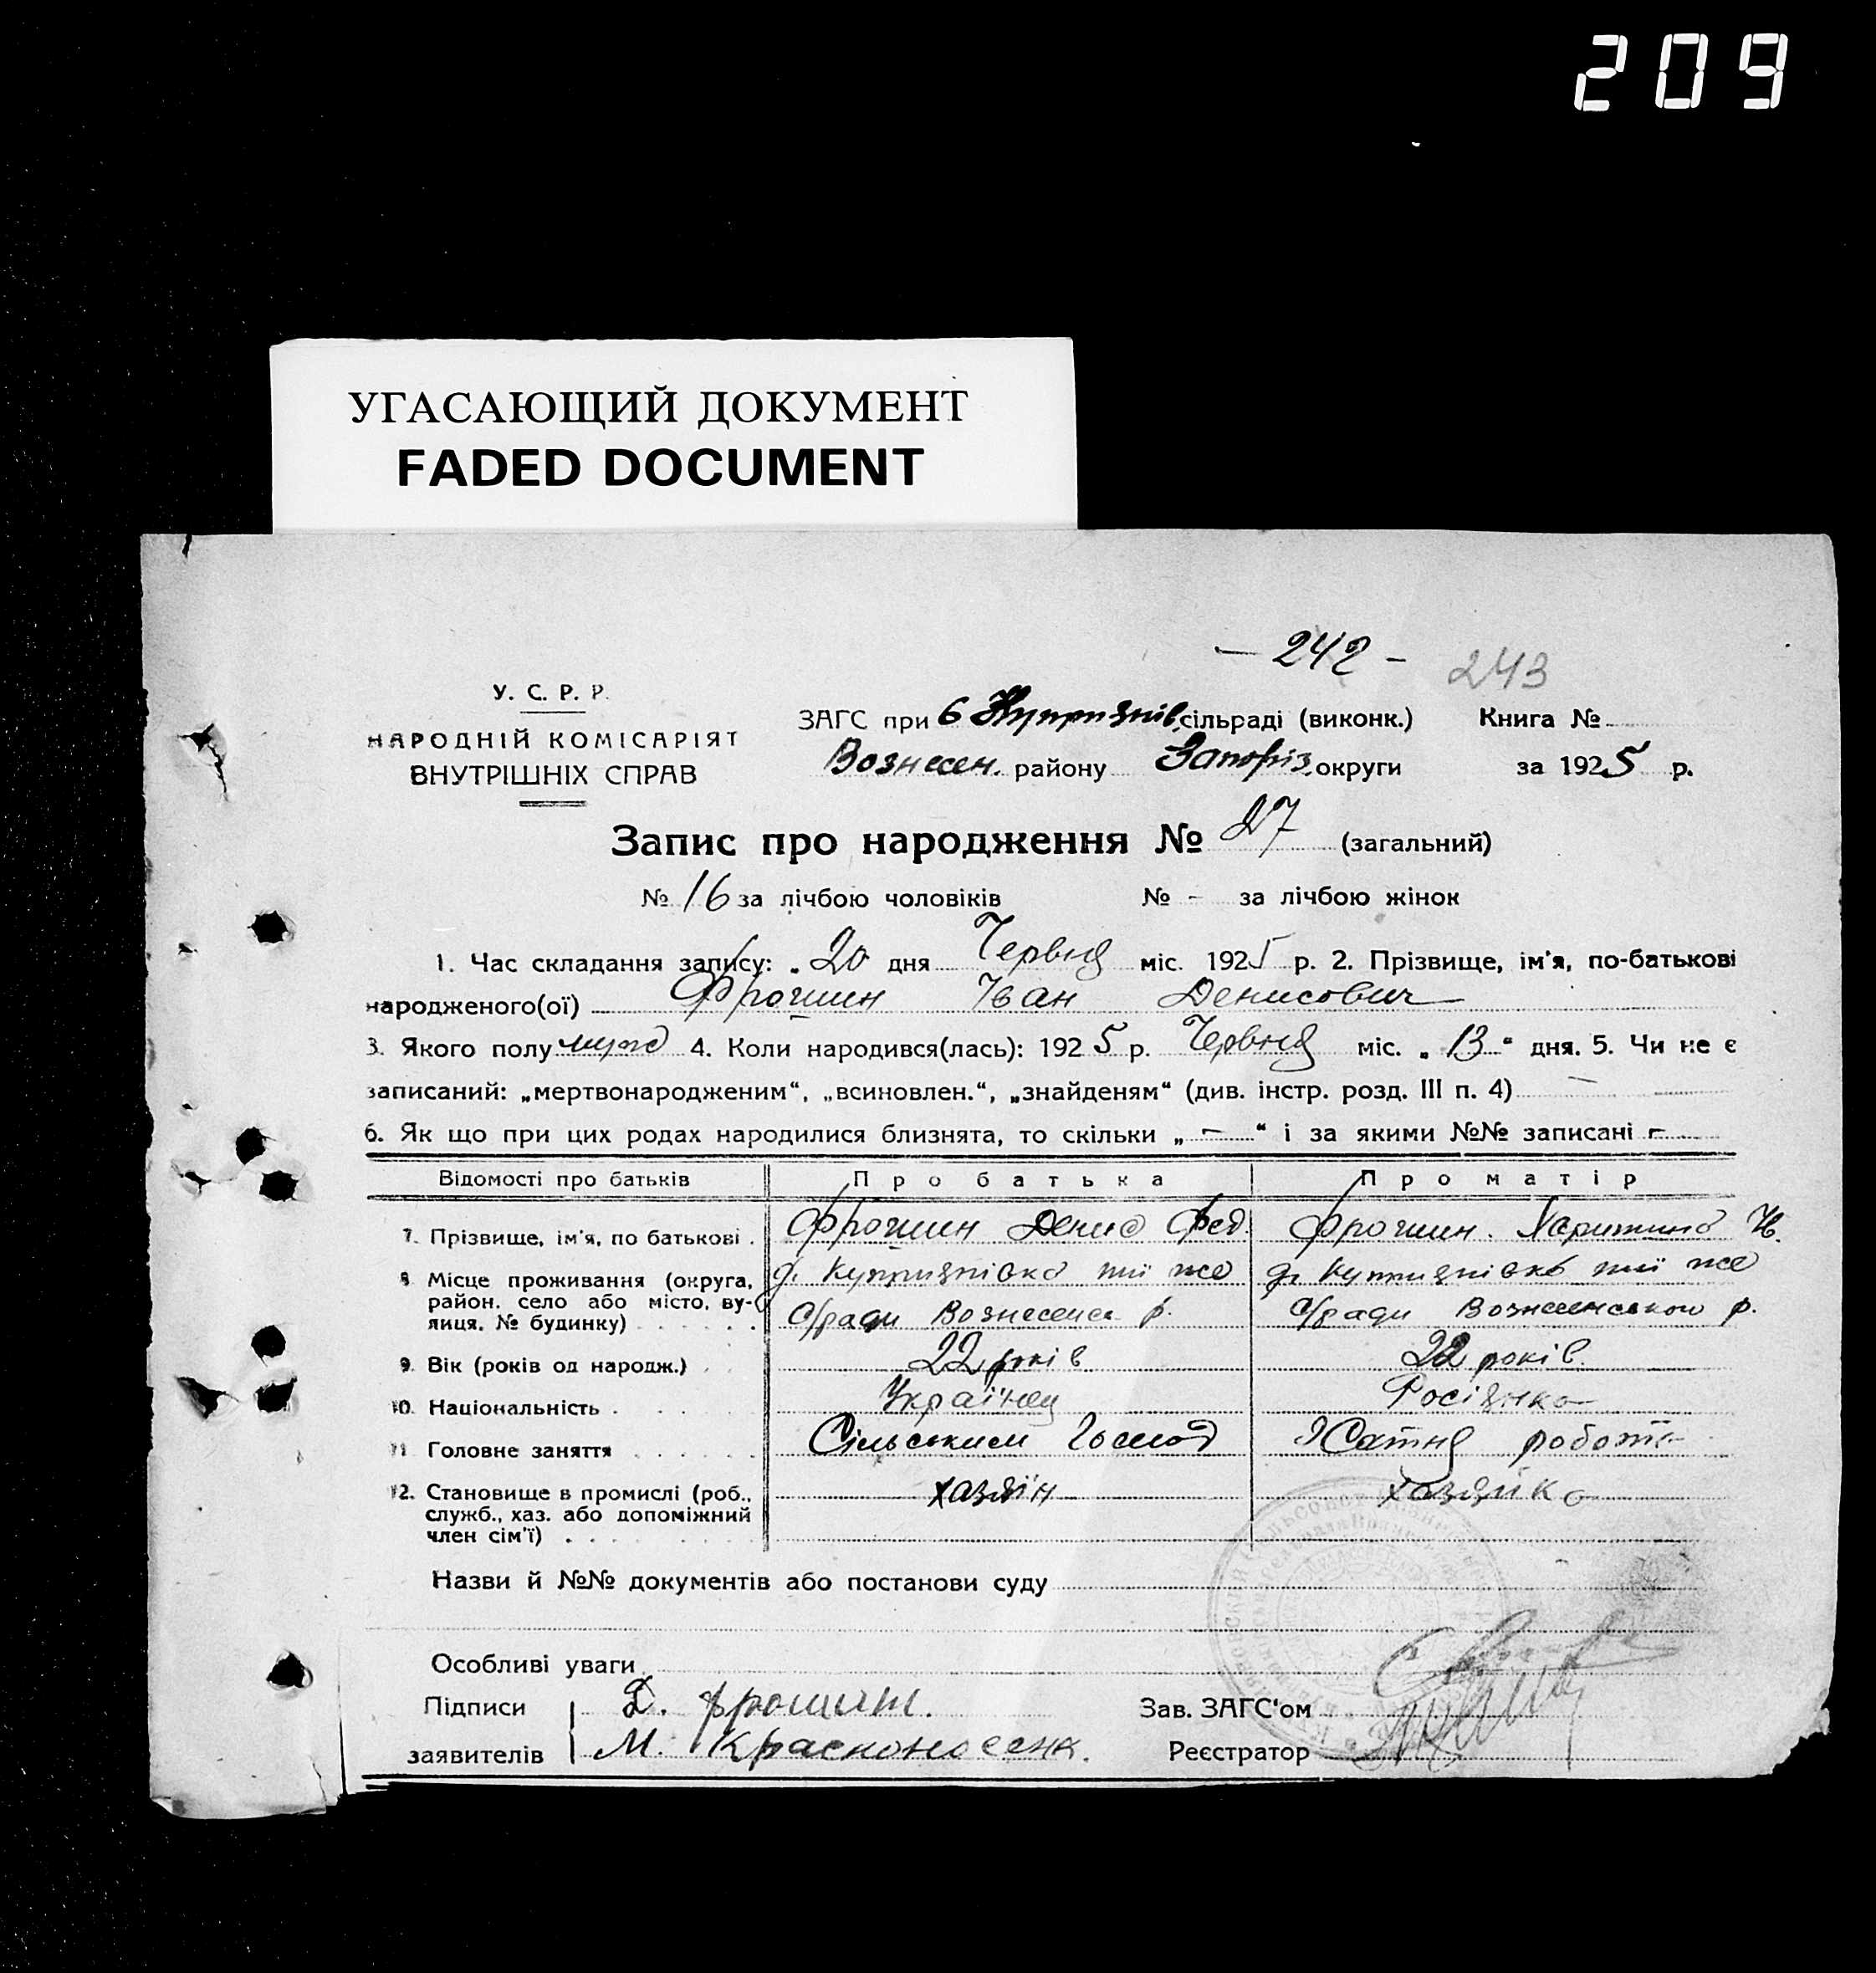 209
УГАСАЮЩИЙ ДОКУМЕНТ
FADED DOCUMENT
— 242 — 243
У. С. Р. Р.
НАРОДНІЙ КОМІСАРІЯТ
ВНУТРІШНІХ СПРАВ
ЗАГС при сільраді (виконк.) Книга №
Вознесен. району Запоріз. округи за 1925 р.
Запис про народження № 27 (загальний)
№ 16 за лічбою чоловіків № – за лічбою жінок
1. Час складання запису: „ 20 дня Червня міс. 1925 р. 2. Прізвище, ім'я, по-батькові
народженого(ої) Фрошин Іван Денисович
3. Якого полу муж 4. Коли народився(лась): 1925 р. Червня міс. „ 13 “ дня. 5. Чи не є
записаний: „мертвонародженим“, „всиновлен.“, „знайденям“ (див. інстр. розд. III п. 4) —
6. Як що при цих родах народилися близнята, то скільки „ — “ і за якими №№ записані –
Відомості про батьків Про батька Про матір
7. Прізвище, ім'я, по батькові . Фрошин Денис Фед. Фрошин. Н.
8. Місце проживання (округа, район, село або місто, вулиця, № будинку) . . . . . .
д. тії же д. тії же
с/ради Вознесенс. р. с/ради Вознесенського р.
9. Вік (років од народж.) . . 22 років 22 років
10. Національність . . . . . . Українец Росіянка
11. Головне заняття . . . . . . Сільським Господ Хатня робота
12. Становище в промислі (роб., хазяїн хазяйка
служб., хаз. або допоміжний
член сім'ї) . . . . . .
Назви й №№ документів або постанови суду
Особливі уваги
Підписи Д. Фрошин. Зав. ЗАГС'ом
заявителів М. Реєстратор